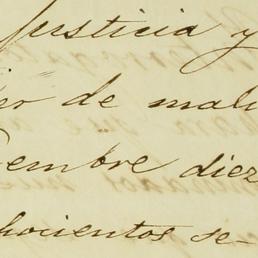 Justicia y
er de mal
embre diez
hocientos se-